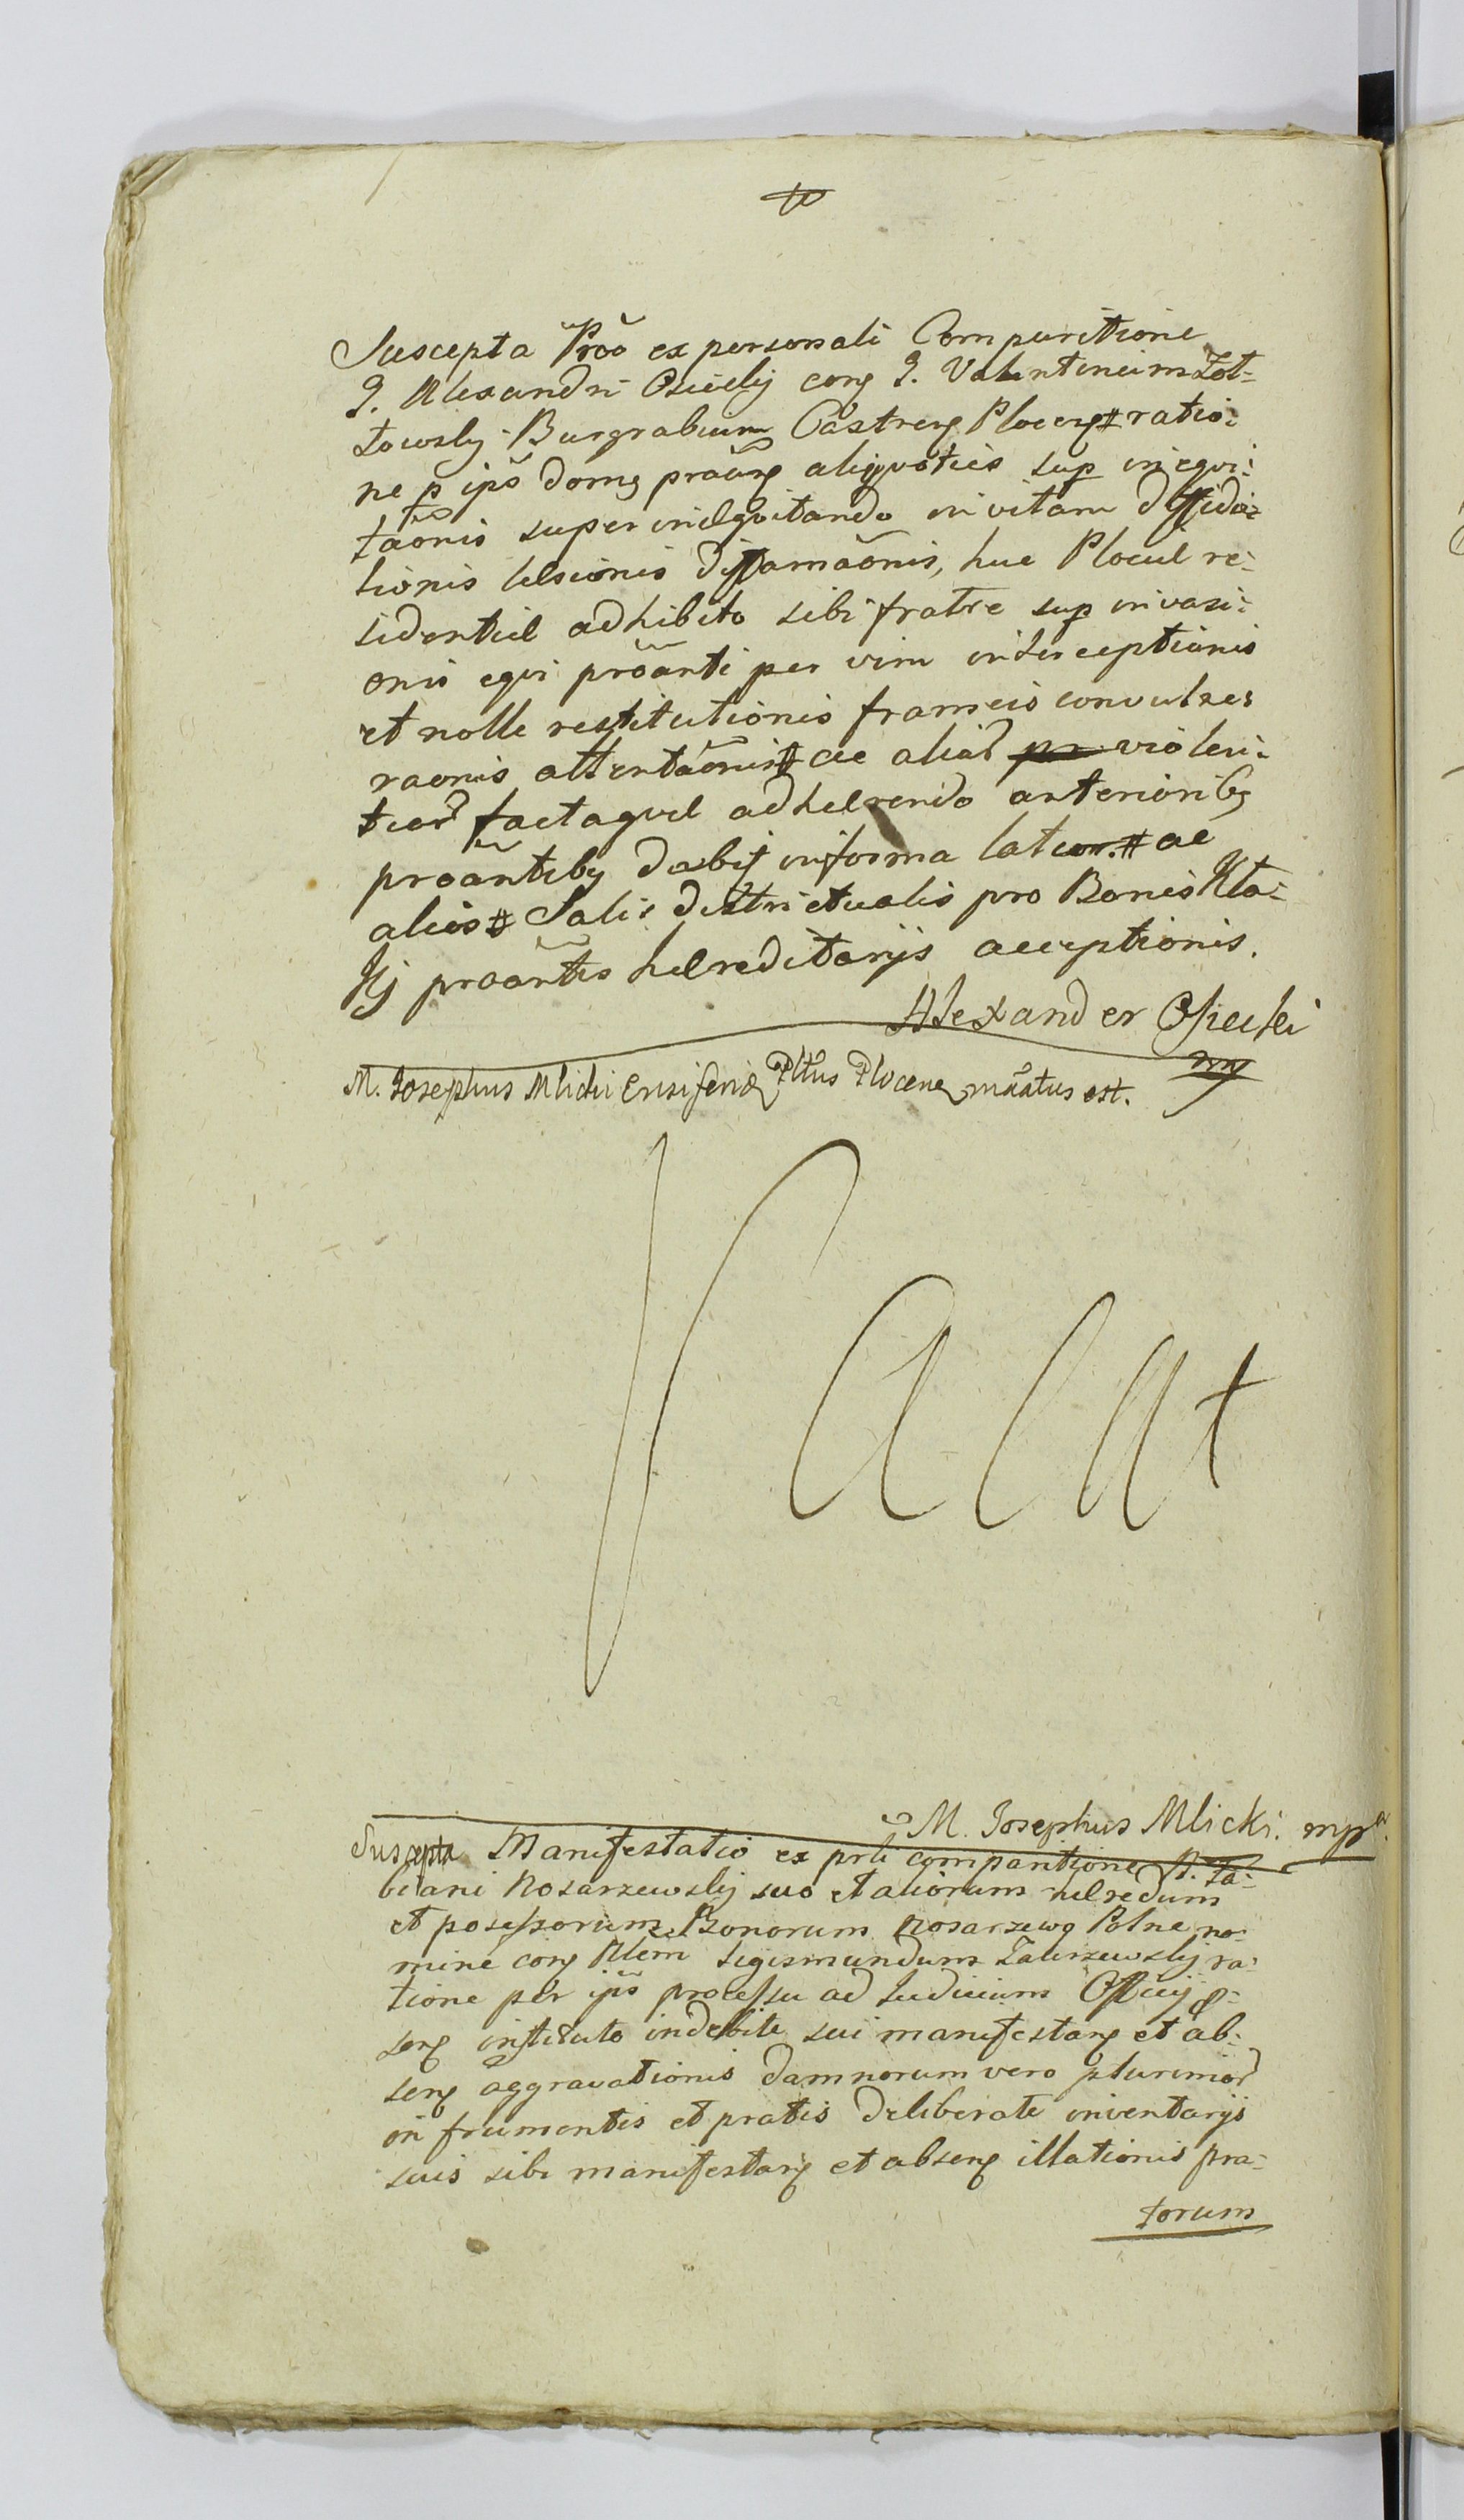 Suscepta Prõo ex personali Comparitione
G. Alexandri Osiecky cong G. Valentineim Zot-
towsky Burgrabium Castreng Ploceng # ratio-
ne p ips domg praung aliquoties sup inequi-
taõnis super inequitando in vitam diffida-
tionis lesionis diffamaõnis, hue Ploce re-
sidentie adhibito sibi fratre sup invasi-
onis equi proãnti per vim interceptionis
et nolle restitutionis frameis convulse
raonis attentaõnis # ac aliar violen-
tiar factaque adhelrendo anterioribg
proãntibg in forma latior. # ac
alias # Salis districtualis pro Bonis Kto-
proãntis helreditarijs acceptionis.
Alexander Osiecki
mp
M. Josephus Mlicki Ensifer Pltus Plocene mãatus est.
Vacat
M. Josephus Mlicki. mpa.
Suscepta Manifestatio ex prli comparitione N. Fa-
biani Nosarzewsky suo et aliorum helredum
et possessorum Bonorum Nosarzewo Polne no-
mine cong Nlem Sigismundum Zalezewsky ra-
tione per ips processu ad Judicium Officij
seng instituto indebite sui manifestang et ab-
seng aggravationis damnorum vero plurimor
in frumentis et pratis deliberate inventarijs
suis sibi manifestang et abseng illationis pra-
torum